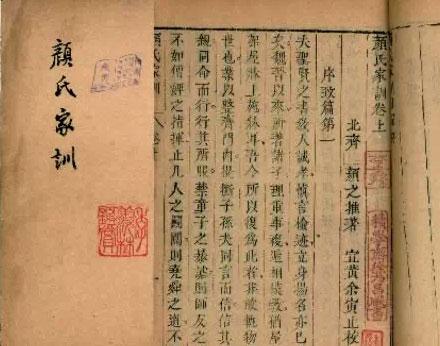 顏氏家訓卷上
北齊 顏之推著 宜黃余寅止校
序致篇第一
夫聖賢之書教人誠孝慎言檢迹立身揚名亦已
矣魏晉以來所著諸子理重事複遞相模斆猶屋
架屋牀上施牀耳吾今所以復爲此者非敢軌物
世也業以整齊門內提撕子孫夫同言而信信其
親同命而行行其所服禁童子之暴謔則師友之
不如傅婢之指揮止凡人之鬭鬩則堯舜之道不
顏氏家訓
顏氏家訓